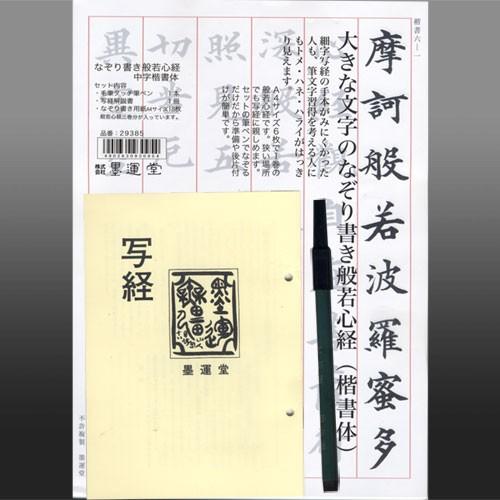 楷書六-一
摩訶般若波羅蜜多
大きな文字のなぞり書き般若心経（楷書体）
細字写経の手本がみにくかった
人も、筆文字習得を考える人に
もトメ・ハネ・ハライがはっき
り見えます
A4サイズ6枚で1巻の
般若心経です。狭い場所
でも写経に親しめます。
セットの筆ペンでなぞる
だけだから準備や後片付
けが簡単です。
照見五
切
異
なぞり書き般若心経
中字楷書体
セット内容
・毛筆タッチ筆ペン 1本
・写経解説書 1冊
・なぞり書き用紙(A4サイズ)18枚
般若心経三巻分が入っています。
品番：29385
株式会社 墨運堂
写経
墨運堂
不許複製 墨運堂